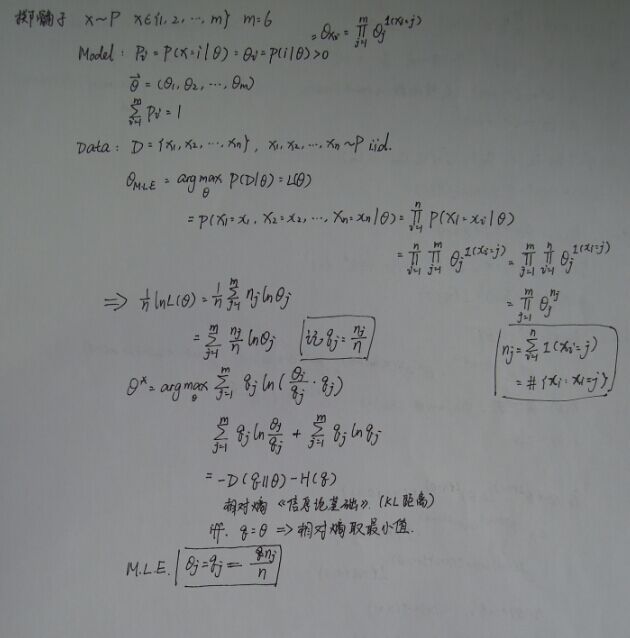 掷骰子 x~P x∈{1, 2, ⋯, m} m=6
Model: Pᵢ = P(x=i|θ) = θᵢ = P(i|θ) > 0
, θₓᵢ = ∏ⱼ₌₁ᵐ θⱼ^{1(xᵢ=j)}
θ⃗ = (θ₁, θ₂, ⋯, θₘ)
∑ᵢ₌₁ᵐ Pᵢ = 1
Data: D = {x₁, x₂, ⋯, xₙ}, x₁, x₂, ⋯, xₙ ~ P iid.
θ_{M.L.E} = arg max_θ P(D|θ) = L(θ)
= P(X₁=x₁, X₂=x₂, ⋯, Xₙ=xₙ|θ) = ∏ᵢ₌₁ⁿ P(Xᵢ=xᵢ|θ)
= ∏ᵢ₌₁ⁿ ∏ⱼ₌₁ᵐ θⱼ^{1(xᵢ=j)} = ∏ⱼ₌₁ᵐ ∏ᵢ₌₁ⁿ θⱼ^{1(xᵢ=j)}
= ∏ⱼ₌₁ᵐ θⱼ^{nⱼ}
nⱼ = ∑ᵢ₌₁ⁿ 1(xᵢ=j)
= #{xᵢ: xᵢ=j}
⟹ 1/n ln L(θ) = 1/n ∑ⱼ₌₁ᵐ nⱼ ln θⱼ
= ∑ⱼ₌₁ᵐ nⱼ/n ln θⱼ 记 qⱼ = nⱼ/n
θ* = arg max_θ ∑ⱼ₌₁ᵐ qⱼ ln(θⱼ/qⱼ · qⱼ)
∑ⱼ₌₁ᵐ qⱼ ln θⱼ/qⱼ + ∑ⱼ₌₁ᵐ qⱼ ln qⱼ
= -D(q||θ) - H(q)
相对熵 《信息论基础》. (KL距离)
iff. q=θ ⟹ 相对熵取最小值.
M.L.E. θⱼ = qⱼ = nⱼ/n